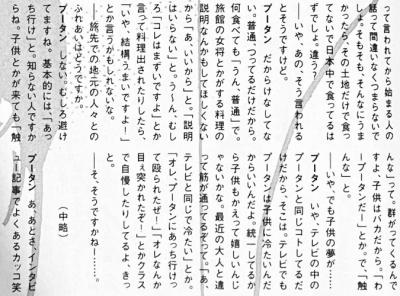 って言われてから始まる人の
話って間違いなくつまらないで
すよ。そもそも、そんなにうま
かったら、その土地だけで食っ
てないで日本中で食ってるは
ずでしょ。違う?
――いや、あの、そう言われる
とそうですけど。
ブータン だからけなしてな
い。普通、つってるだけだから。
何食べても「うん、普通」で。
旅館の女将とかがする料理の
説明なんかもしてほしくない
から「あ、いいから」と。「説明
はいらない」と。う〜ん、むし
ろ「コレはまずいですよ」とか
言って料理出されたりしたら、
「いや、結構うまいですよ!」
とか言うかもしれないな。
――旅先での地元の人々との
ふれあいはどうですか。
ブータン しない。むしろ避け
てますね。基本的には「あっ
ち行け」と。知らない人ですか
らね。子供とかが来ても「触
んな」って。群がってくるんで
すよ、子供はバカだから。「わ
ーブータンだー」とか。で、「触
んな」と。
――いや、でも子供の夢が……。
ブータン いや、テレビの中の
ブータンと同じコトしてるだ
けだから、そこは。テレビでも
ブータンは子供に冷たいんだ
からいいんだよ。統一してるか
ら子供もかえって嬉しいんじ
ゃないかな。最近の大人と違
って筋が通ってるぞって。「あ、
テレビと同じで冷たい」とか。
「オレ、ブータンにあっち行けっ
て殴られたぜー」「オレなんか
目ェ突かれたぞー」とかクラス
で自慢したりしてるよ、きっ
と。
――そ、そうですかねー……。
(中略)
ブータン ああとさ、インタビ
ュー記事でよくあるカッコ笑